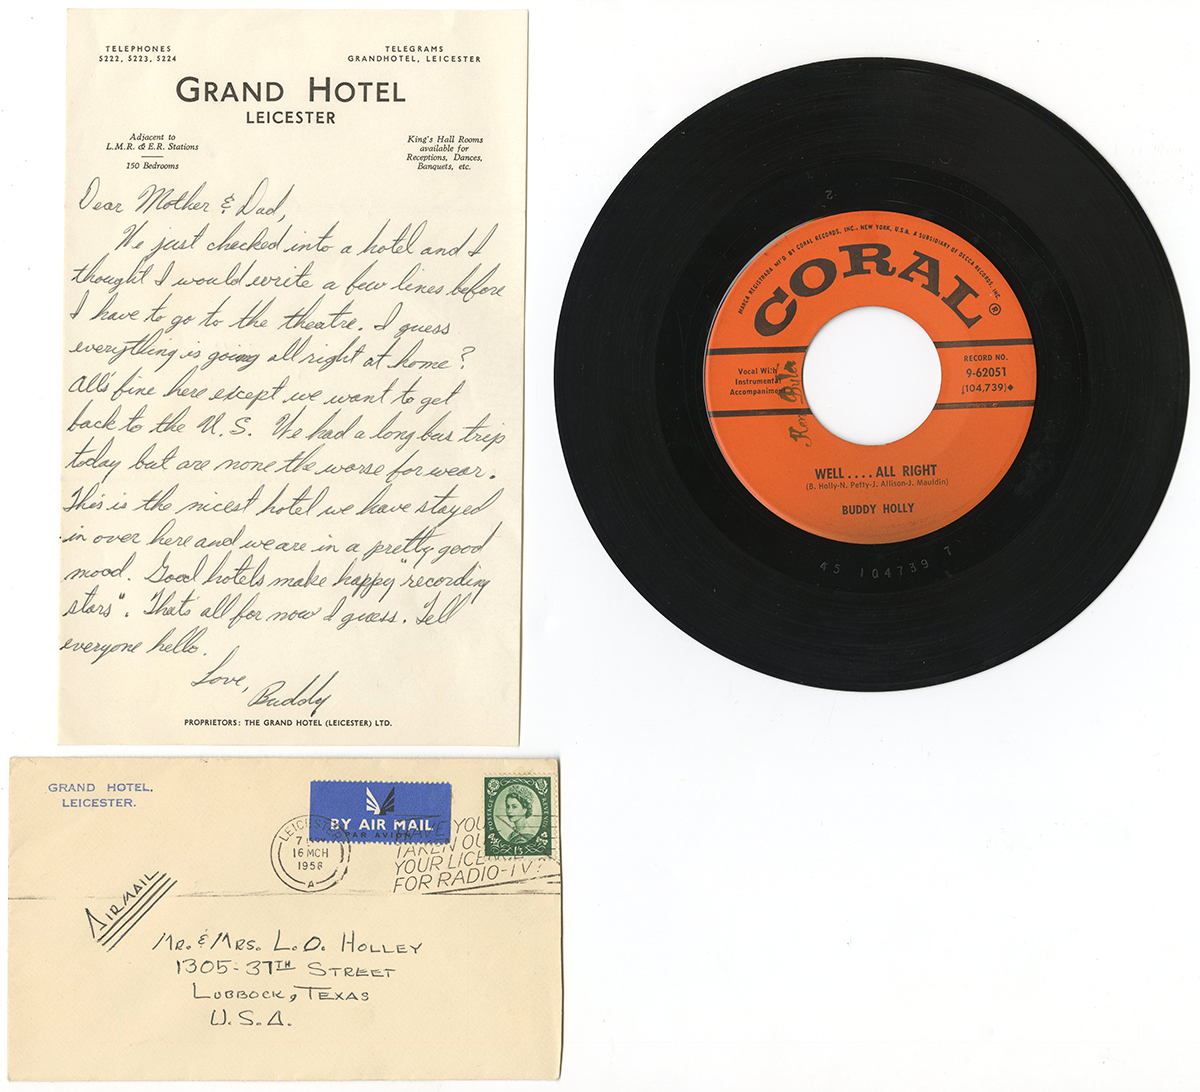 TELEPHONES
5222, 5223, 5224
TELEGRAMS
GRANDHOTEL, LEICESTER
GRAND HOTEL
LEICESTER
Adjacent to
L.M.R. & E.R. Stations
150 Bedrooms
King's Hall Rooms
available for
Receptions, Dances,
Banquets, etc.
Dear Mother & Dad,
We just checked into a hotel and I
thought I would write a few lines before
I have to go to the theatre. I guess
everything is going all right at home?
All's fine here except we want to get
back to the U.S. We had a long bus trip
today but are none the worse for wear.
This is the nicest hotel we have stayed
in over here and we are in a pretty good
mood. Good hotels make happy "recording
stars". That's all for now I guess. Tell
everyone hello.
Love,
Buddy
PROPRIETORS: THE GRAND HOTEL (LEICESTER) LTD.
GRAND HOTEL,
LEICESTER.
BY AIR MAIL
PAR AVION
LEICESTER
16 MCH
1958
A
HAVE YOU
TAKEN OU
YOUR LICENCE
FOR RADIO-TV?
POSTAGE
REVENUE
1/3
AIRMAIL
MR. & MRS. L.O. HOLLEY
1305-37TH STREET
LUBBOCK, TEXAS
U.S.A.
2
MARCA REGISTRADA MF'D. BY CORAL RECORDS, INC., NEW YORK, U.S.A. A SUBSIDIARY OF DECCA RECORDS, INC.
CORAL®
Vocal With
Instrumental
Accompaniment
RECORD NO.
9-62051
(104,739)◆
WELL....ALL RIGHT
(B. Holly-N. Petty-J. Allison-J. Mauldin)
BUDDY HOLLY
45 104739 7